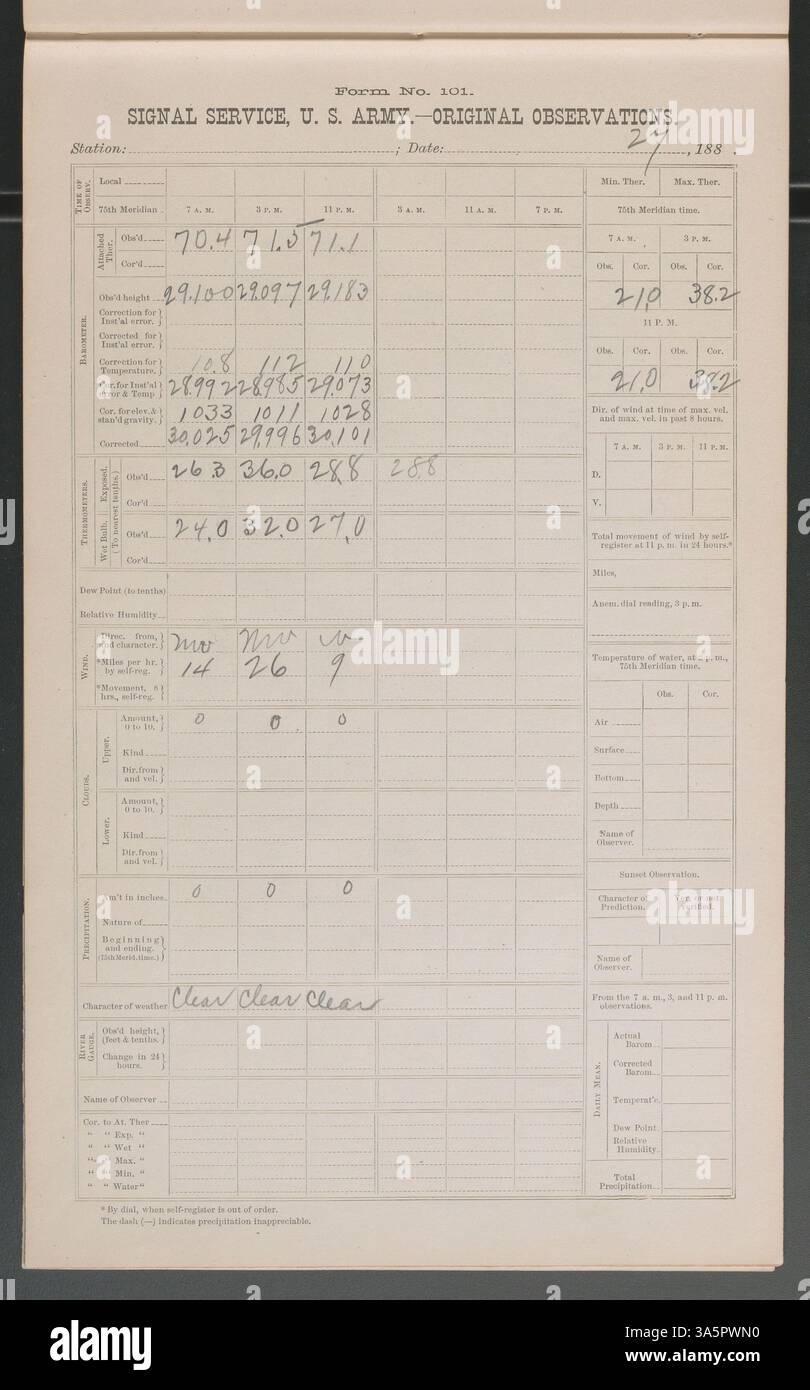 Form No. 101.
SIGNAL SERVICE, U. S. ARMY.—ORIGINAL OBSERVATIONS.
Station: ; Date: 27, 188 .
TIME OF OBSERV.
Local
75th Meridian 7 A. M. 3 P. M. 11 P. M. 3 A. M. 11 A. M. 7 P. M.
BAROMETER.
Attached Ther.
Obs'd 70.4 71.5 71.1
Cor'd
Obs'd height 29.100 29.097 29.183
Correction for Inst'al error.
Corrected for Inst'al error.
Correction for Temperature. 10.8 112 110
Cor. for Inst'al error & Temp 28.992 28.985 29.073
Cor. for elev. & stan'd gravity. 1033 1011 1028
Corrected 30.025 29.996 30.101
THERMOMETERS.
(To nearest tenths.)
Exposed.
Obs'd 26.3 36.0 28.8 28.8
Cor'd
Wet Bulb.
Obs'd 24.0 32.0 27.0
Cor'd
Dew Point (to tenths)
Relative Humidity
WIND.
Direc. from, and character. nw nw w
*Miles per hr. by self-reg. 14 26 9
*Movement, 8 hrs., self-reg.
CLOUDS.
Upper.
Amount, 0 to 10. 0 0 0
Kind
Dir. from and vel.
Lower.
Amount, 0 to 10.
Kind
Dir. from and vel.
PRECIPITATION.
Am't in inches 0 0 0
Nature of
Beginning and ending. (75th Merid. time.)
Character of weather Clear Clear Clear
RIVER GAUGE.
Obs'd height, (feet & tenths.
Change in 24 hours.
Name of Observer
Cor. to At. Ther
" " Exp. "
" " Wet "
" " Max. "
" " Min. "
" " Water "
* By dial, when self-register is out of order.
The dash (—) indicates precipitation inappreciable.
Min. Ther. Max. Ther.
75th Meridian time.
7 A. M. 3 P. M.
Obs. Cor. Obs. Cor.
21.0 38.2
11 P. M.
Obs. Cor. Obs. Cor.
21.0 38.2
Dir. of wind at time of max. vel.
and max. vel. in past 8 hours.
7 A. M. 3 P. M. 11 P. M.
D.
V.
Total movement of wind by self-
register at 11 p. m. in 24 hours.*
Miles,
Anem. dial reading, 3 p. m.
Temperature of water, at 2 p. m.,
75th Meridian time.
Obs. Cor.
Air
Surface
Bottom
Depth
Name of Observer.
Sunset Observation.
Character of Prediction. Ver. or not Verified.
Name of Observer.
From the 7 a. m., 3, and 11 p. m.
observations.
DAILY MEAN.
Actual Barom.
Corrected Barom.
Temperat'e.
Dew Point.
Relative Humidity.
Total Precipitation.
alamy
Image ID: 3A5PWN0
www.alamy.com